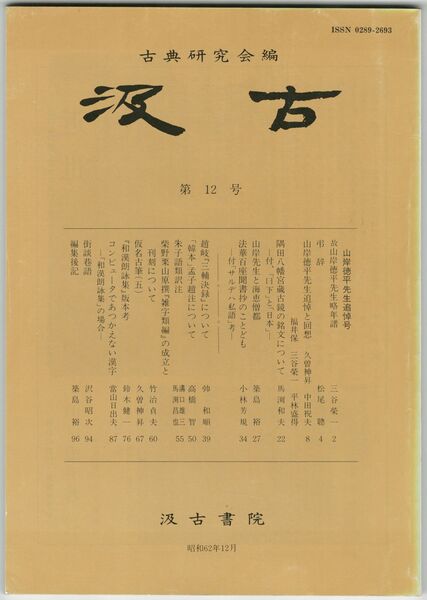 ISSN 0289-2693
古典研究会編
汲古
第 12 号
山岸徳平先生追悼号
故山岸徳平先生略年譜 三谷栄一 2
弔辞 松尾聰 4
山岸徳平先生追悼と回想 久曽神昇 中田祝夫 8
福井保 三谷栄一 平林盛得
隅田八幡宮蔵古鏡の銘文について 馬渕和夫 22
―付、「日下」と「日本」―
山岸先生と海恵僧都 築島裕 27
法華百座聞書抄のことども 小林芳規 34
―付「サルデハ私語」考―
趙岐「三輔決録」について 帥和順 39
「韓本」孟子趙注について 高橋智 50
朱子語類訳注 溝口雄三
馬渕昌也 55
柴野栗山原撰『雑字類編』の成立と
刊刻について 竹治貞夫 60
仮名古筆(五) 久曽神昇 67
『和漢朗詠集』版本考 鈴木健一 76
コンピュータであつかえない漢字 當山日出夫 87
―『和漢朗詠集』の場合―
街談巷語 沢谷昭次 94
編集後記 築島裕 96
汲古書院
昭和62年12月